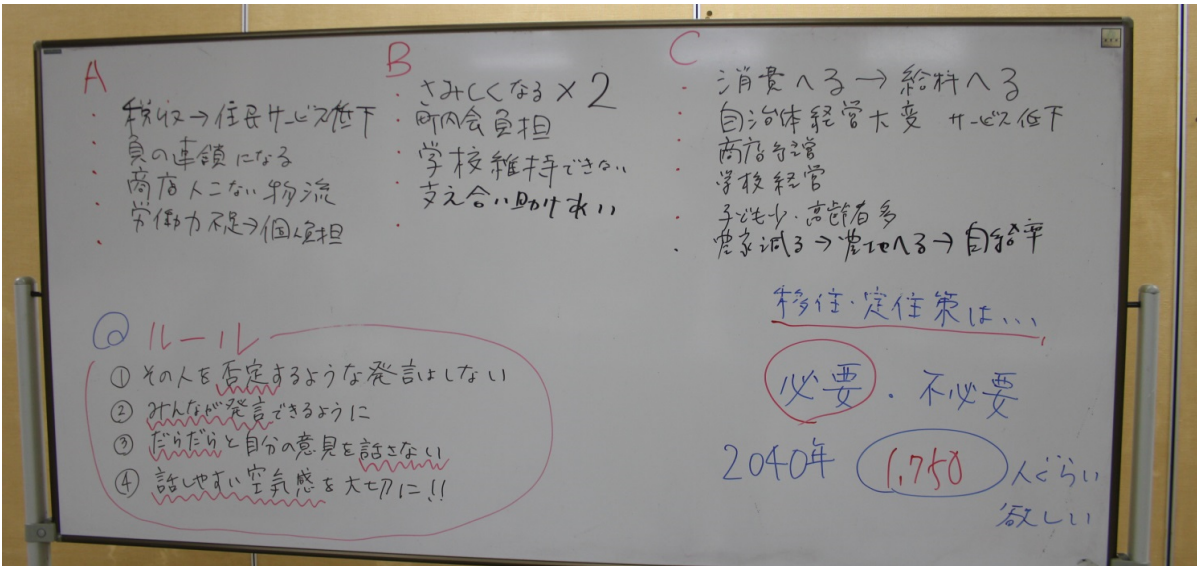 A
・税収→住民サービス低下
・負の連鎖になる
・商店人こない物流
・労働力不足→個人負担
・
B
・さみしくなる×2
・町内会負担
・学校維持できない
・支え合い助けあい
C
・消費へる→給料へる
・自治体経営大変 サービス低下
・商店経営
・学校経営
・子ども少・高齢者多
・農家減る→農地へる→自給率
◎ルール
① その人を否定するような発言はしない
② みんなが発言できるように
③ だらだらと自分の意見を話さない
④ 話しやすい空気感を大切に!!
移住・定住策は...
必要・不必要
2040年 1,750人ぐらい
欲しい